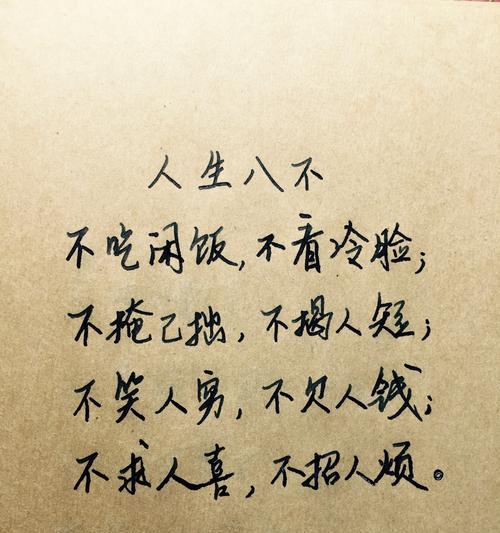 人生八不
不吃闲饭,不看冷脸;
不掩己拙,不揭人短;
不笑人穷,不欠人钱;
不求人喜,不招人烦。